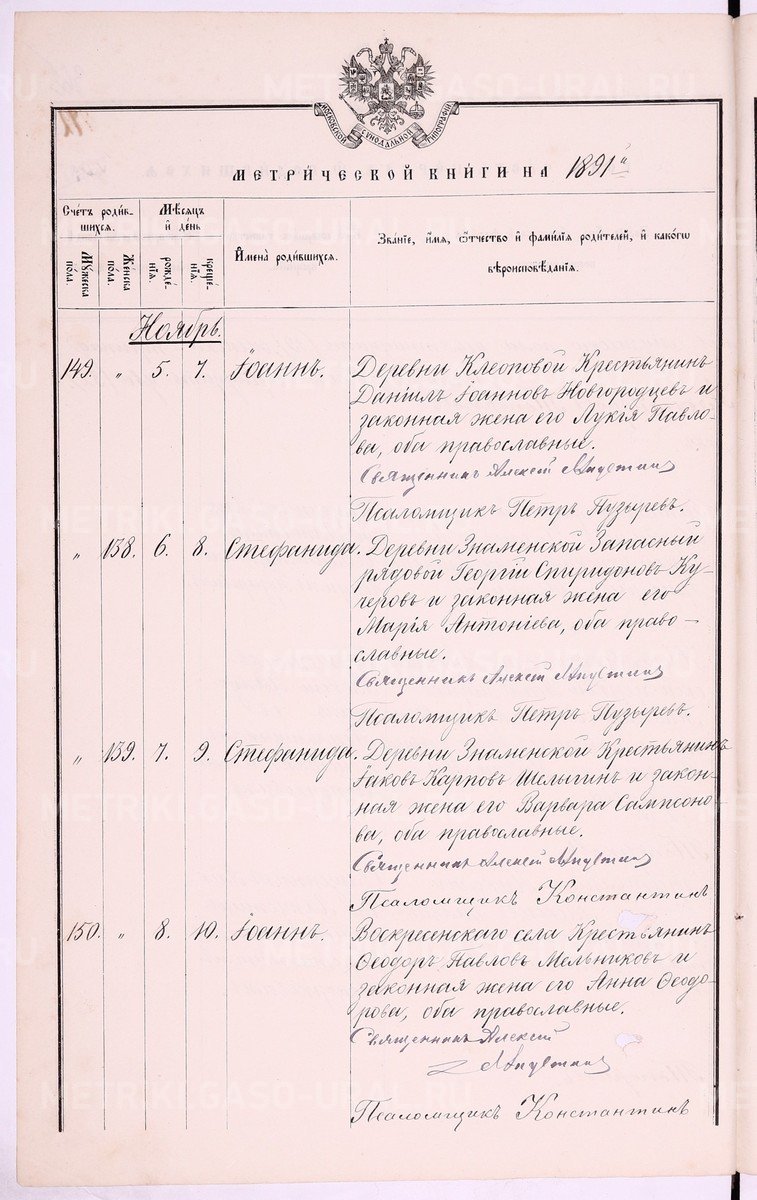 МОСКОВСКОЙ СѴНОДАЛЬНОЙ ТИПОГРАФІИ
МЕТРИ́ЧЕСКОЙ КНИ́ГИ НА 1891 й
Сче́тъ роди́в-
шихся.
Мꙋ́жеска
по́ла.
Же́нска
по́ла.
Мѣ́сяцъ
и҆ де́нь
рожде́-
нїя.
креще́-
нїя.
И҆мена̀ роди́вшихся.
Зва́нїе, и҆́мя, ѻ҆́тчество и҆ фами́лїя роди́телей, и҆ како́гѡ
вѣроисповѣ́данїя.
Ноябрь.
149. „ 5. 7. Іоаннъ. Деревни Клеоповой Крестьянинъ
Даніилъ Іоанновъ Новгородцевъ и
законная жена его Лукія Павло-
ва, оба православные.
Священникъ Алексей
Псаломщикъ Петръ Пузыревъ.
„ 138. 6. 8. Стефанида. Деревни Знаменской Запасный
рядовой Георгій Спиридоновъ Ку-
черовъ и законная жена его
Марія Антоніева, оба право-
славные.
Священникъ Алексей
Псаломщикъ Петръ Пузыревъ.
„ 139. 7. 9. Стефанида. Деревни Знаменской Крестьянинъ
Іаковъ Карповъ Шелыгинъ и закон-
ная жена его Варвара Сампсоно-
ва, оба православные.
Священникъ Алексей
Псаломщикъ Константинъ
150. „ 8. 10. Іоаннъ. Воскресенскаго села Крестьянинъ
Ѳеодоръ Павловъ Мельниковъ и
законная жена его Анна Ѳеодо-
рова, оба православные.
Священникъ Алексей
Псаломщикъ Константинъ
METRIKI.GASO-URAL.RU